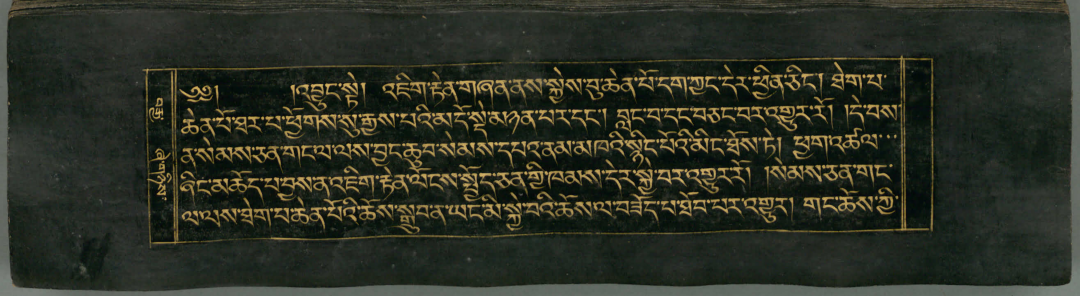 ༄༅། །འབྱུང་སྟེ། འཇིག་རྟེན་གཞན་ནས་སྐྱེས་བུ་ཆེན་པོ་དག་ཀྱང་དེར་ཕྱིན་ཅིང་། ཐེག་པ་
ཆེན་པོ་ཐར་པ་ཕྱོགས་སུ་རྒྱས་པའི་མདོ་སྡེ་མཉན་པ་དང་། བླང་བ་དང་བཅང་བར་འགྱུར་རོ། །དེ་བས་
ན་སེམས་ཅན་གང་ལ་ལས་བྱང་ཆུབ་སེམས་དཔའ་ནམ་མཁའི་སྙིང་པོའི་མིང་ཐོས་ཏེ། ཕྱག་འཚལ་
ཞིང་མཆོད་པ་བྱས་ན་འཇིག་རྟེན་ལོངས་སྤྱོད་ཅན་གྱི་ཁམས་དེར་སྐྱེ་བར་འགྱུར་རོ། །སེམས་ཅན་གང་
ལ་ལས་ཐེག་པ་ཆེན་པོའི་ཆོས་སྒྲུབ་ན་ཡང་མི་སྐྱེ་བའི་ཆོས་ལ་བཟོད་པ་ཐོབ་པར་འགྱུར། གང་ཆོས་ཀྱི་